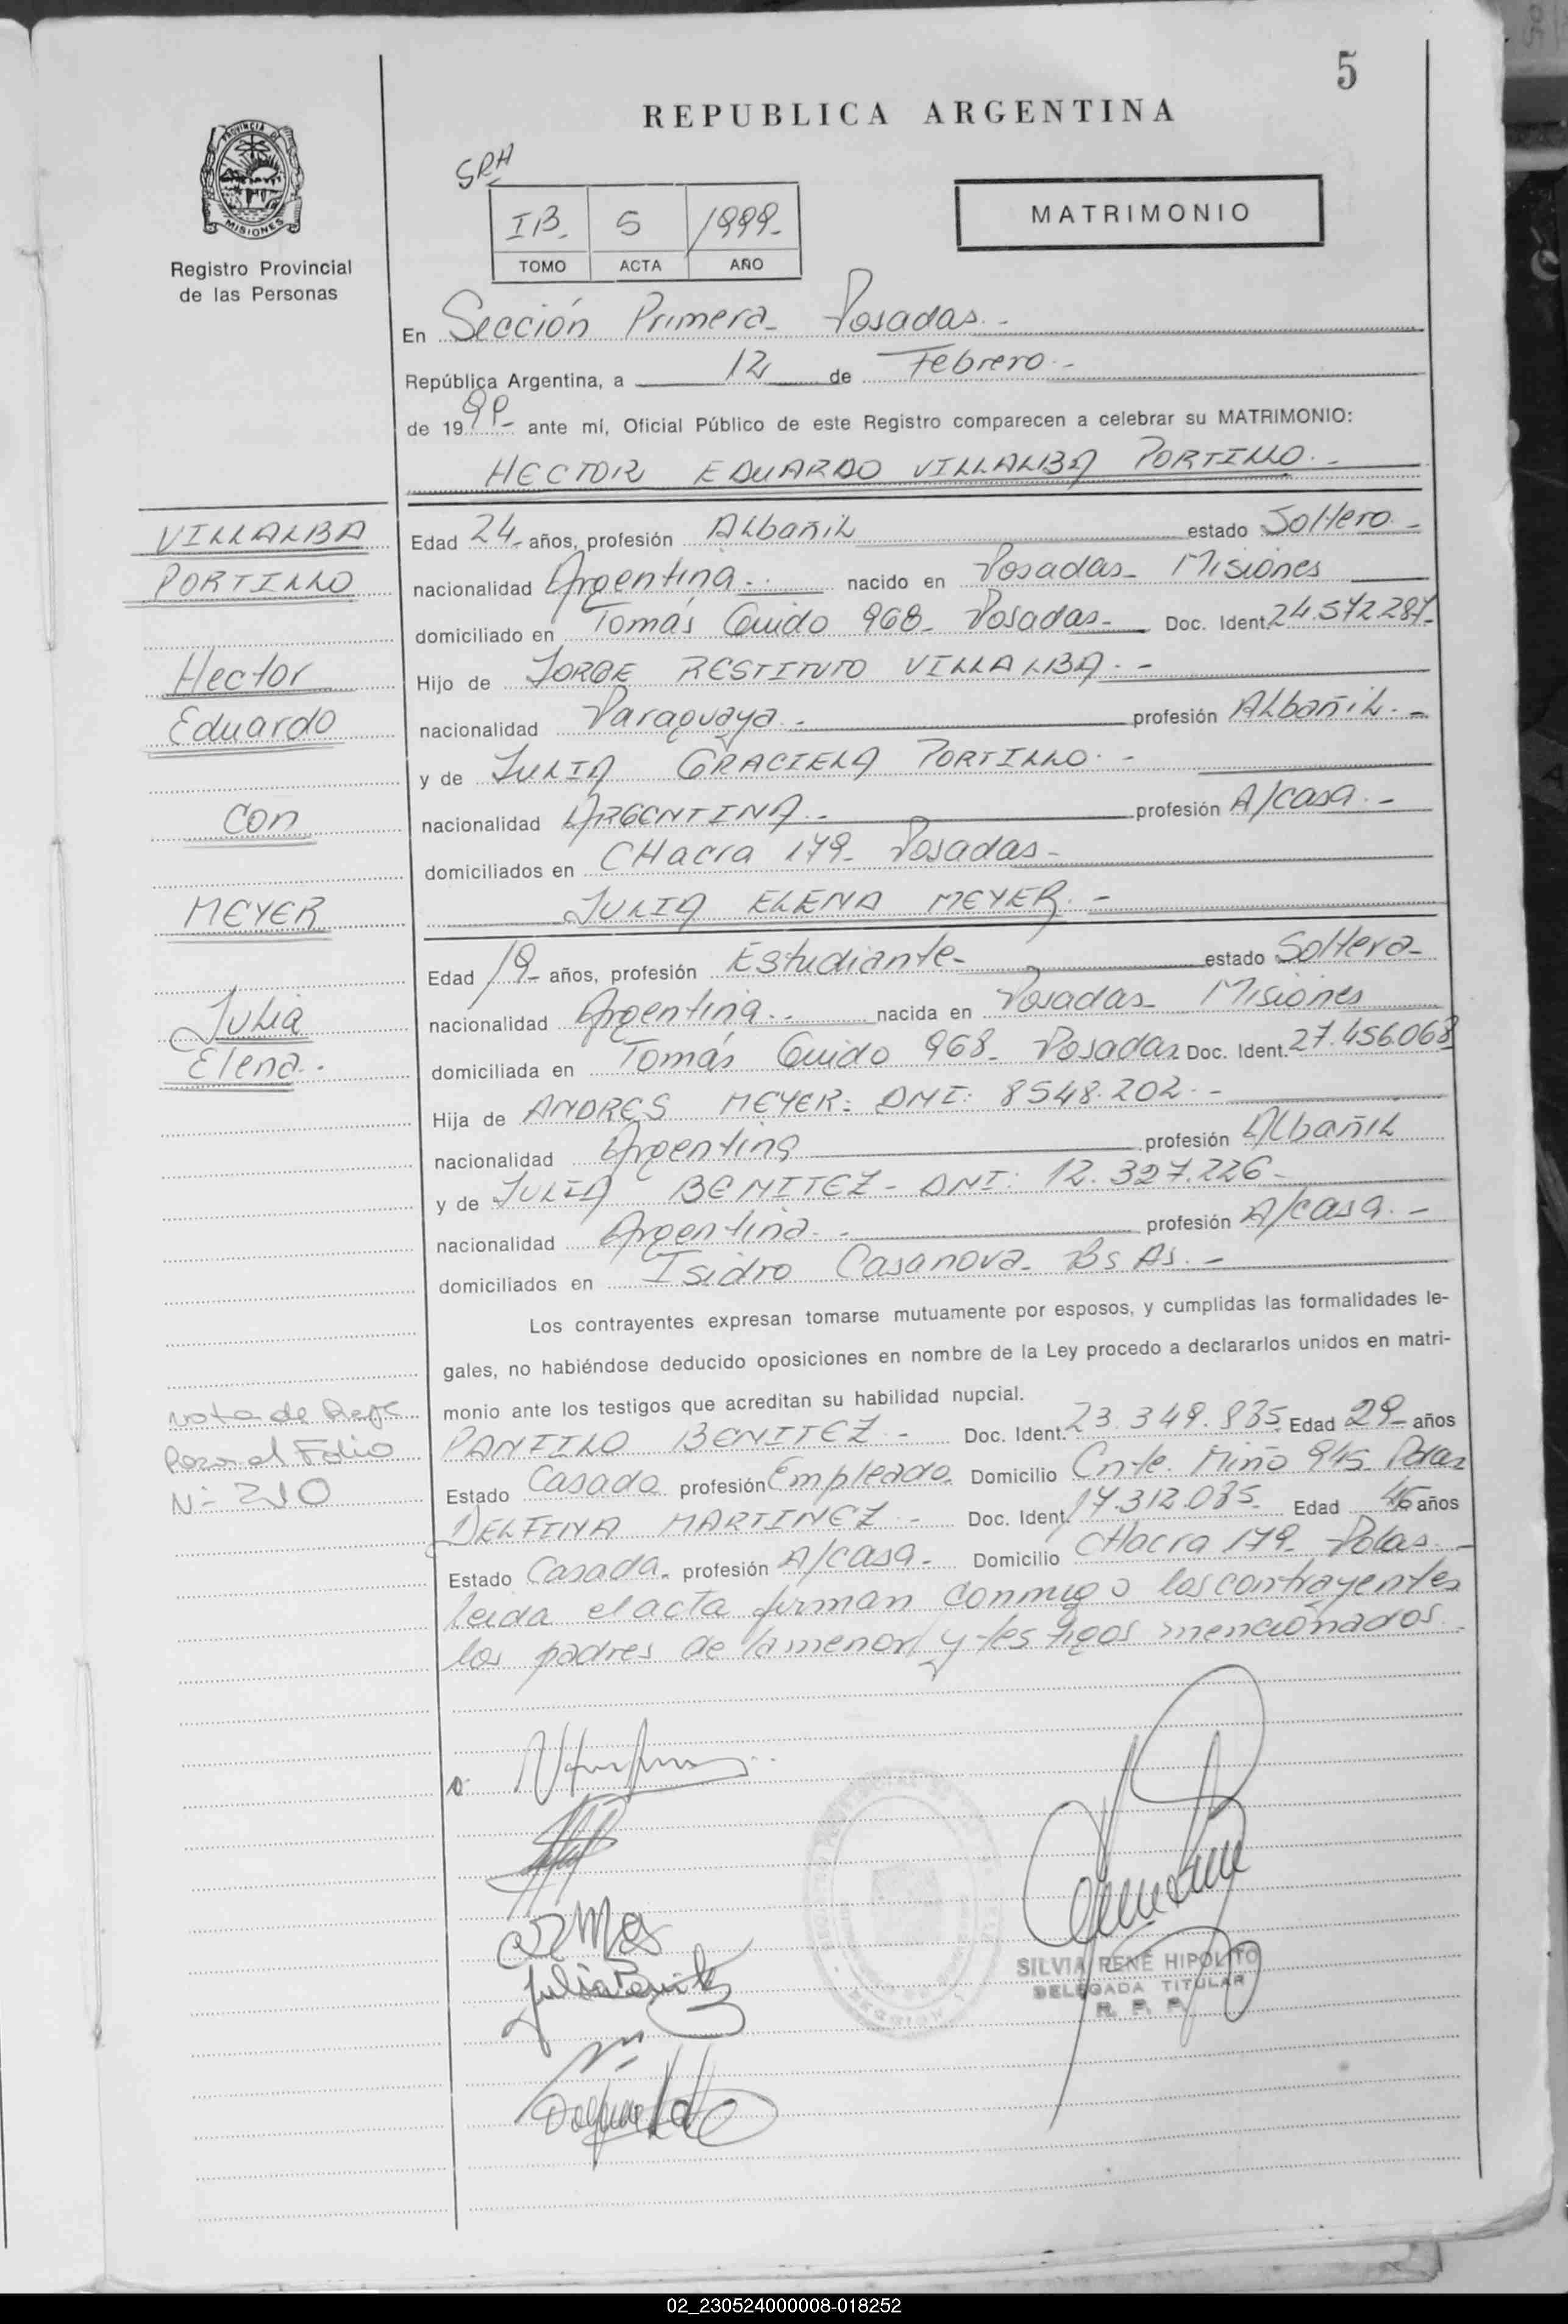 5
REPUBLICA ARGENTINA
PROVINCIA DE
MISIONES
Registro Provincial
de las Personas
SRH
IB- 5 1999-
TOMO ACTA AÑO
MATRIMONIO
En Sección Primera- Posadas.-
República Argentina, a 12 de Febrero.-
de 1999- ante mí, Oficial Público de este Registro comparecen a celebrar su MATRIMONIO:
HECTOR EDUARDO VILLALBA PORTILLO.-
VILLALBA
PORTILLO
Hector
Eduardo
con
MEYER
Julia
Elena.-
Edad 24- años, profesión Albañil estado Soltero.-
nacionalidad Argentina.- nacido en Posadas- Misiones
domiciliado en Tomás Guido 968- Posadas- Doc. Ident. 24.572.287-
Hijo de JORGE RESTITUTO VILLALBA.-
nacionalidad Paraguaya.- profesión Albañil.-
y de JULIA GRACIELA PORTILLO.-
nacionalidad ARGENTINA.- profesión A/casa.-
domiciliados en CHacra 179- Posadas-
JULIA ELENA MEYER.-
Edad 19- años, profesión Estudiante- estado Soltera-
nacionalidad Argentina.- nacida en Posadas- Misiones
domiciliada en Tomás Guido 968- Posadas Doc. Ident. 27.456.068
Hija de ANDRES MEYER: DNI: 8548.202.-
nacionalidad Argentina profesión Albañil
y de JULIA BENITEZ- DNI: 12.327.226-
nacionalidad Argentina.- profesión A/casa.-
domiciliados en Isidro Casanova- Bs As.-
Los contrayentes expresan tomarse mutuamente por esposos, y cumplidas las formalidades le-
gales, no habiéndose deducido oposiciones en nombre de la Ley procedo a declararlos unidos en matri-
monio ante los testigos que acreditan su habilidad nupcial.
nota de
al Folio
N- 210
PANFILO BENITEZ.- Doc. Ident. 23.349.835 Edad 29- años
Estado Casado profesión Empleado. Domicilio Cnte. Miño 945 Pdas
DELFINA MARTINEZ.- Doc. Ident. 17.312.085- Edad 46 años
Estado Casada. profesión A/casa- Domicilio CHacra 179- Pdas.-
Leida el acta firman conmigo los contrayentes
los padres de la menor y testigos mencionados.
Julia Benitez
SILVIA RENÉ HIPOLITO
DELEGADA TITULAR
R. P. P.
02_230524000008-018252